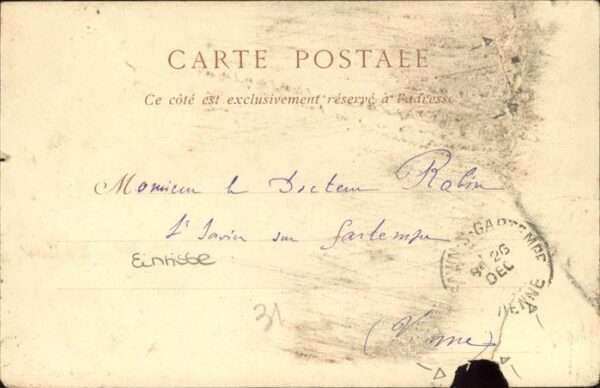 CARTE POSTALE
Ce côté est exclusivement réservé à l'adresse
Monsieur le Docteur Robin
St Savin sur Gartempe
(Vienne)
31
26
DEC